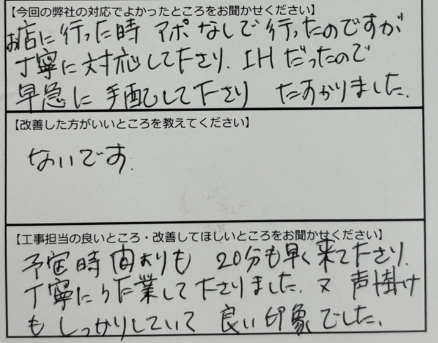 【今回の弊社の対応でよかったところをお聞かせください】
お店に行った時 アポなしで行ったのですが
丁寧に対応して下さり、IHだったので
早急に手配して下さり たすかりました。
【改善した方がいいところを教えてください】
ないです。
【工事担当の良いところ・改善してほしいところをお聞かせください】
予定時間よりも 20分も早く来て下さり、
丁寧に作業して下さりました。又 声掛け
もしっかりしていて 良い印象でした。